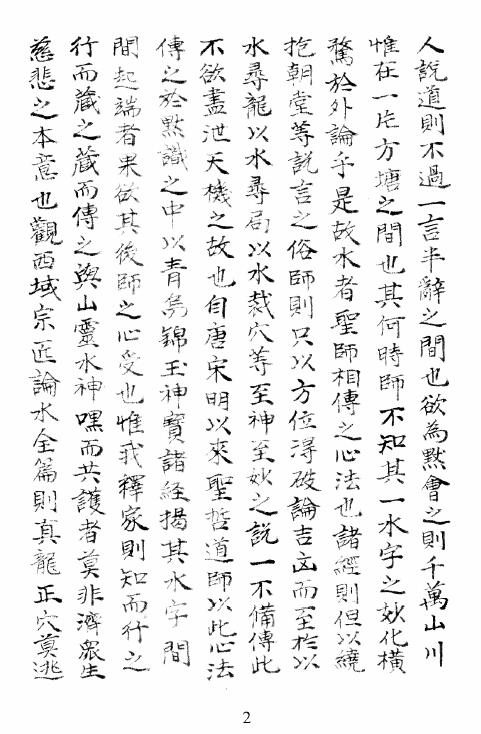 人說道則不過一言半辭之間也欲為黙會之則千萬山川
惟在一片方塘之間也其何時師不知其一水字之妙化橫
騖於外論乎是故水者聖師相傳之心法也諸經則但以繞
抱朝堂等說言之俗師則只以方位得破論吉凶而至於以
水尋龍以水尋局以水裁穴等至神至妙之說一不備傳此
不欲盡泄天機之故也自唐宋明以來聖哲道師以此心法
傳之於黙識之中以青烏錦玉神寶諸經揭其水字間
間起端者果欲其後師之心受也惟我釋家則知而行之
行而藏之藏而傳之與山靈水神嘿而共護者莫非濟眾生
慈悲之本意也觀西域宗匠論水全篇則真龍正穴莫逃
2